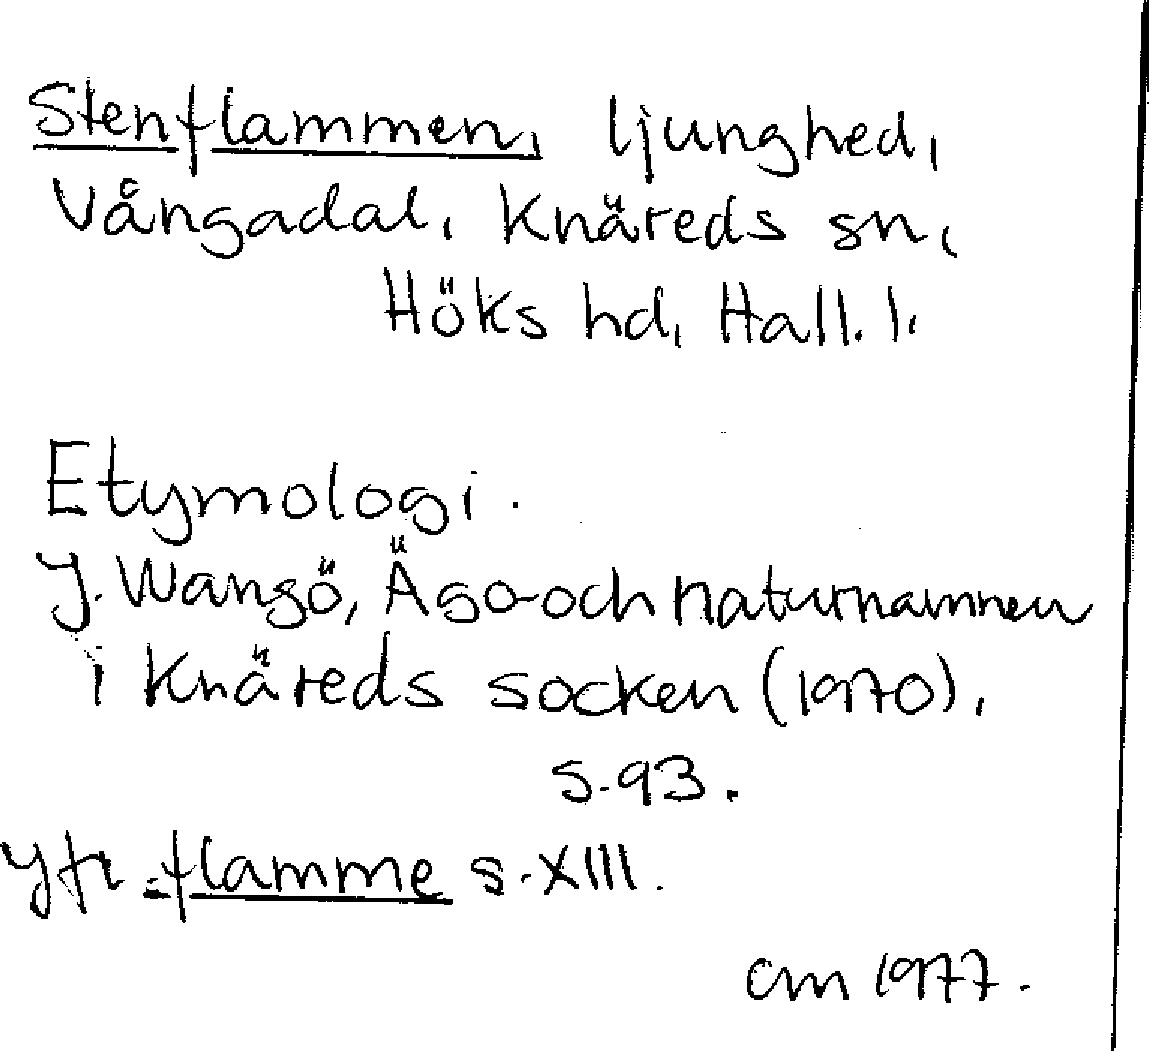 Stenflammen, ljunghed,
Vångadal, Knäreds sn,
Höks hd, Hall. l.
Etymologi.
J. Wangö, Ägo- och naturnamnen
i Knäreds socken (1970),
s. 93.
Jfr -flamme s. XIII.
CM 1977.